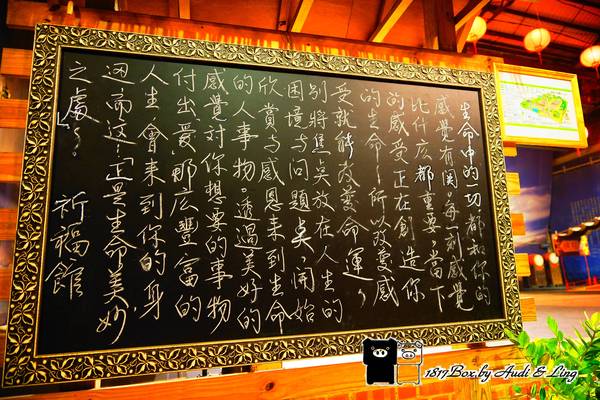 生命中的一切,都和你的
感覺有関,每一刻感覺
比什麼都重要,當下
的感受正在創造你
的生命!所以改變感
受就能改變命運,
別將焦点放在人生的
困境与問題点,開始
欣賞与感恩來到生命
的人事物。透過美好的
感覺對你想要的事物
付出最那么豐富的
人生會來到你的身,
因而這!正是生命美妙
之處。
祈福館
1817Box.by Audi & Ling